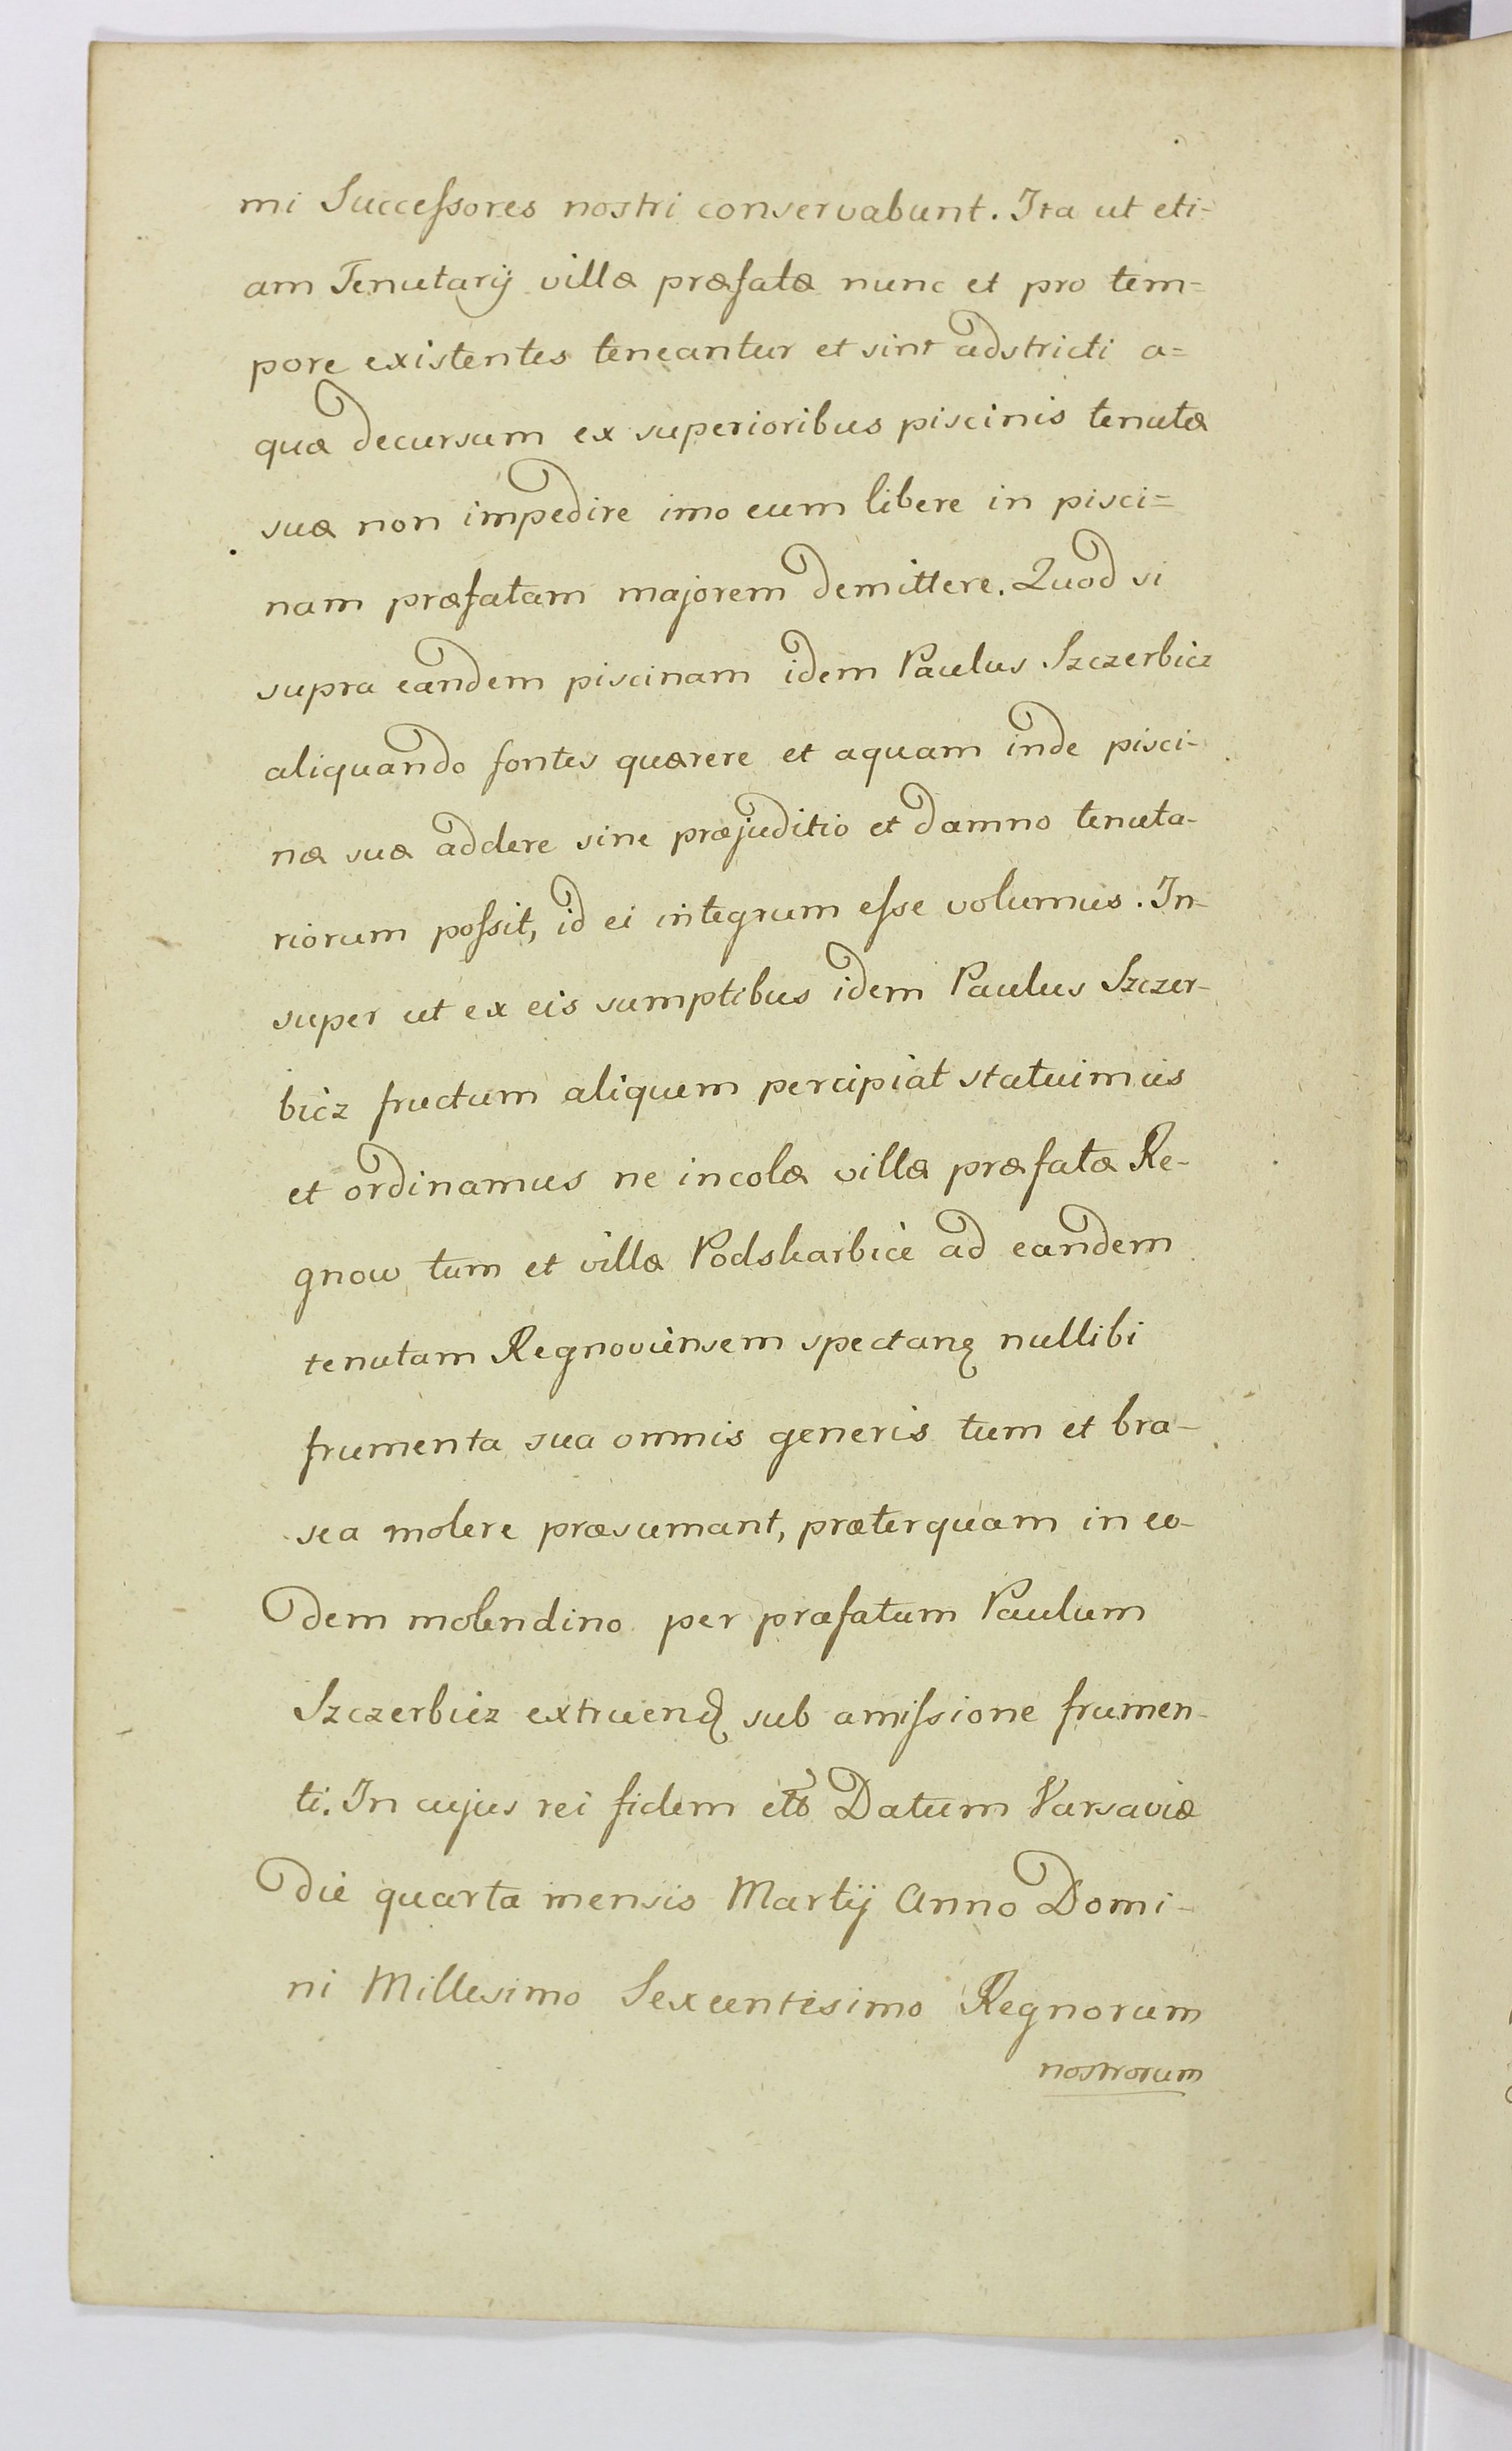 mi Successores nostri conservabunt. Ita ut eti-
am Tenutarij villæ præfatæ nunc et pro tem=
pore existentes teneantur et sint adstricti a=
quæ decursum ex superioribus piscinis tenutæ
suæ non impedire imo eum libere in pisci=
nam præfatam majorem demittere. Quod si
supra eandem piscinam idem Paulus Szczerbicz
aliquando fontes quærere et aquam inde pisci-
næ suæ addere sine præjuditio et damno tenuta-
riorum possit, id ei integrum esse volumus. In-
super ut ex eis sumptibus idem Paulus Szczer-
bicz fructum aliquem percipiat statuimus
et ordinamus ne incolæ villæ præfatæ Re-
gnow tum et villæ Podskarbice ad eandem
tenutam Regnoviensem spectanę nullibi
frumenta sua omnis generis tum et bra-
sea molere præsumant, præterquam in eo-
dem molendino per præfatum Paulum
Szczerbicz extruenđ sub amissione frumen-
ti. In cujus rei fidem ettō Datum Varsaviæ
die quarta mensis Martij Anno Domi-
ni Millesimo Sexcentesimo Regnorum
nostrorum